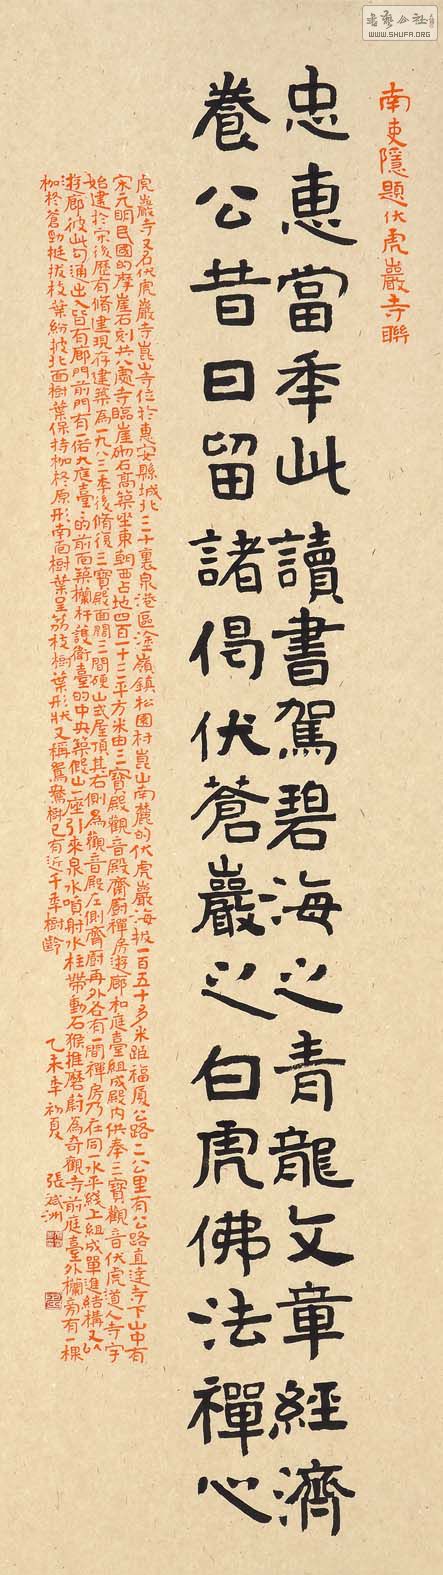 南吏隱題伏虎巖寺聯
忠惠當年此讀書駕碧海之青龍文章經濟
養公昔日留諸偈伏蒼巖之白虎佛法禪心
虎巖寺又名伏虎巖寺崑山寺位於惠安縣城北三十裏泉港區塗嶺鎮松園村崑山南麓的伏虎巖海拔一百五十多米距福厦公路二公里有公路直達寺下山中有
宋元明民國的摩崖石刻共八處寺臨崖砌石高築坐東朝西占地四百一十二平方米由三寶殿觀音殿齋廚禪房遊廊和庭臺組成殿内供奉三寶觀音伏虎道人寺宇
始建於宋後歷有脩建現存建築為一九八三年後脩復三寶殿面闊三間硬山式屋頂其右側為觀音殿左側齊廚再外各有一間禪房乃在同一水平綫上組成單進結構又以
遊廊彼此勾通出入皆有廊門前門有一偌大庭臺的前面築欄杆護衛臺的中央築假山一座引來泉水噴射水柱帶動石猴推磨蔚為奇觀寺前庭臺外欄旁有一棵
枷柊蒼勁挺拔枝葉紛披北面樹葉保持枷柊原形南面樹葉呈荔枝樹葉形狀又稱鴛鴦樹已有近千年樹齡 乙未年初夏 張斌洲
書藝公社
WWW.SHUFA.ORG